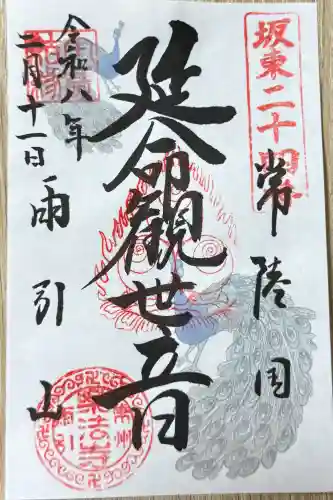 坂東二十四番
常陸国
延命觀世音
令和八年
二月十一日
雨引山
常州
雨引
楽法寺